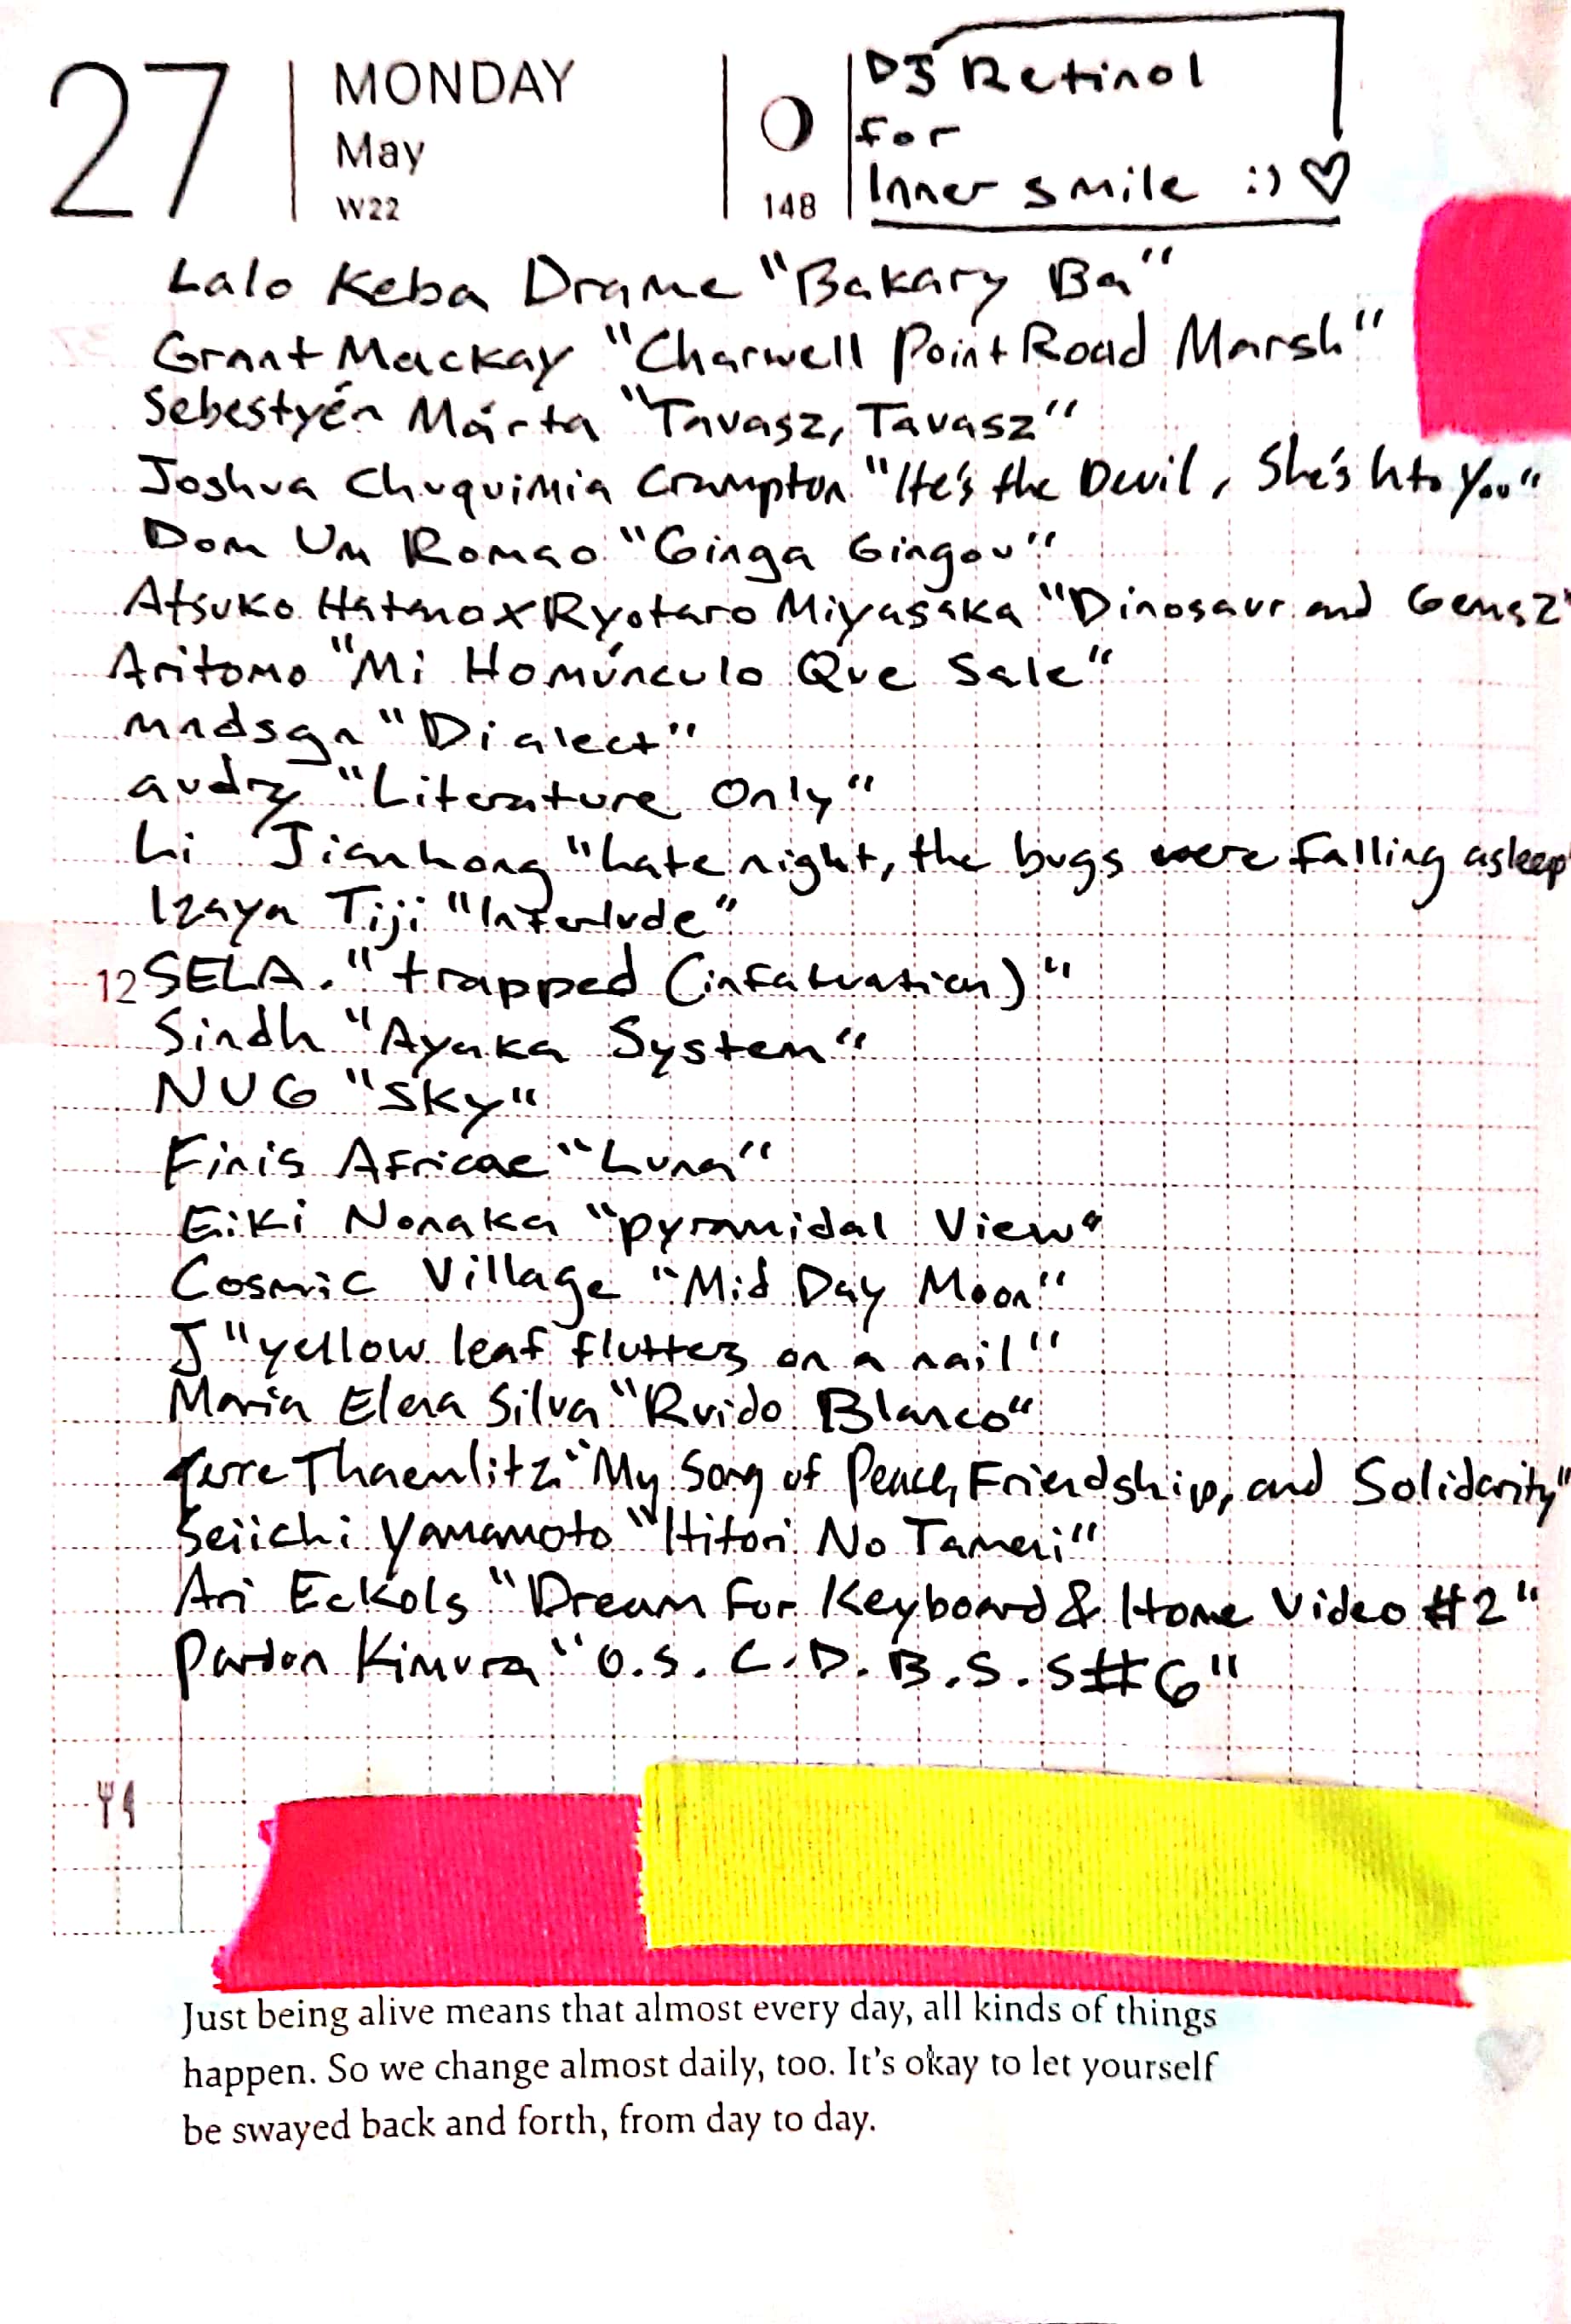 27
MONDAY
May
W22
148
DJ Retinol
for
Inner smile :) ♡
Lalo Keba Drame "Bakary Ba"
Grant Mackay "Charwell Point Road Marsh"
Sebestyén Márta "Tavasz, Tavasz"
Joshua Chuquimia Crampton "He's the Devil, She's Into You"
Dom Um Romao "Ginga Gingou"
Atsuko Hatano x Ryotaro Miyasaka "Dinosaur and Gems 2"
Aritomo "Mi Homúnculo Que Sale"
mndsgn "Dialect"
audrz "Literature Only"
Li Jianhong "Late night, the bugs were falling asleep"
Izaya Tiji "Interlude"
12 SELA. "trapped (infatuation)"
Sindh "Ayaka System"
NUG "Sky"
Finis Africae "Luna"
Eiki Nonaka "pyramidal View"
Cosmic Village "Mid Day Moon"
J "yellow leaf flutters on a nail"
Maria Elena Silva "Ruido Blanco"
Terre Thaemlitz "My Song of Peace, Friendship, and Solidarity"
Seiichi Yamamoto "Hitori No Tameni"
Ari Eckols "Dream for Keyboard & Home Video #2"
Pardon Kimura "O.S.C.D.B.S.S#6"
Just being alive means that almost every day, all kinds of things
happen. So we change almost daily, too. It's okay to let yourself
be swayed back and forth, from day to day.